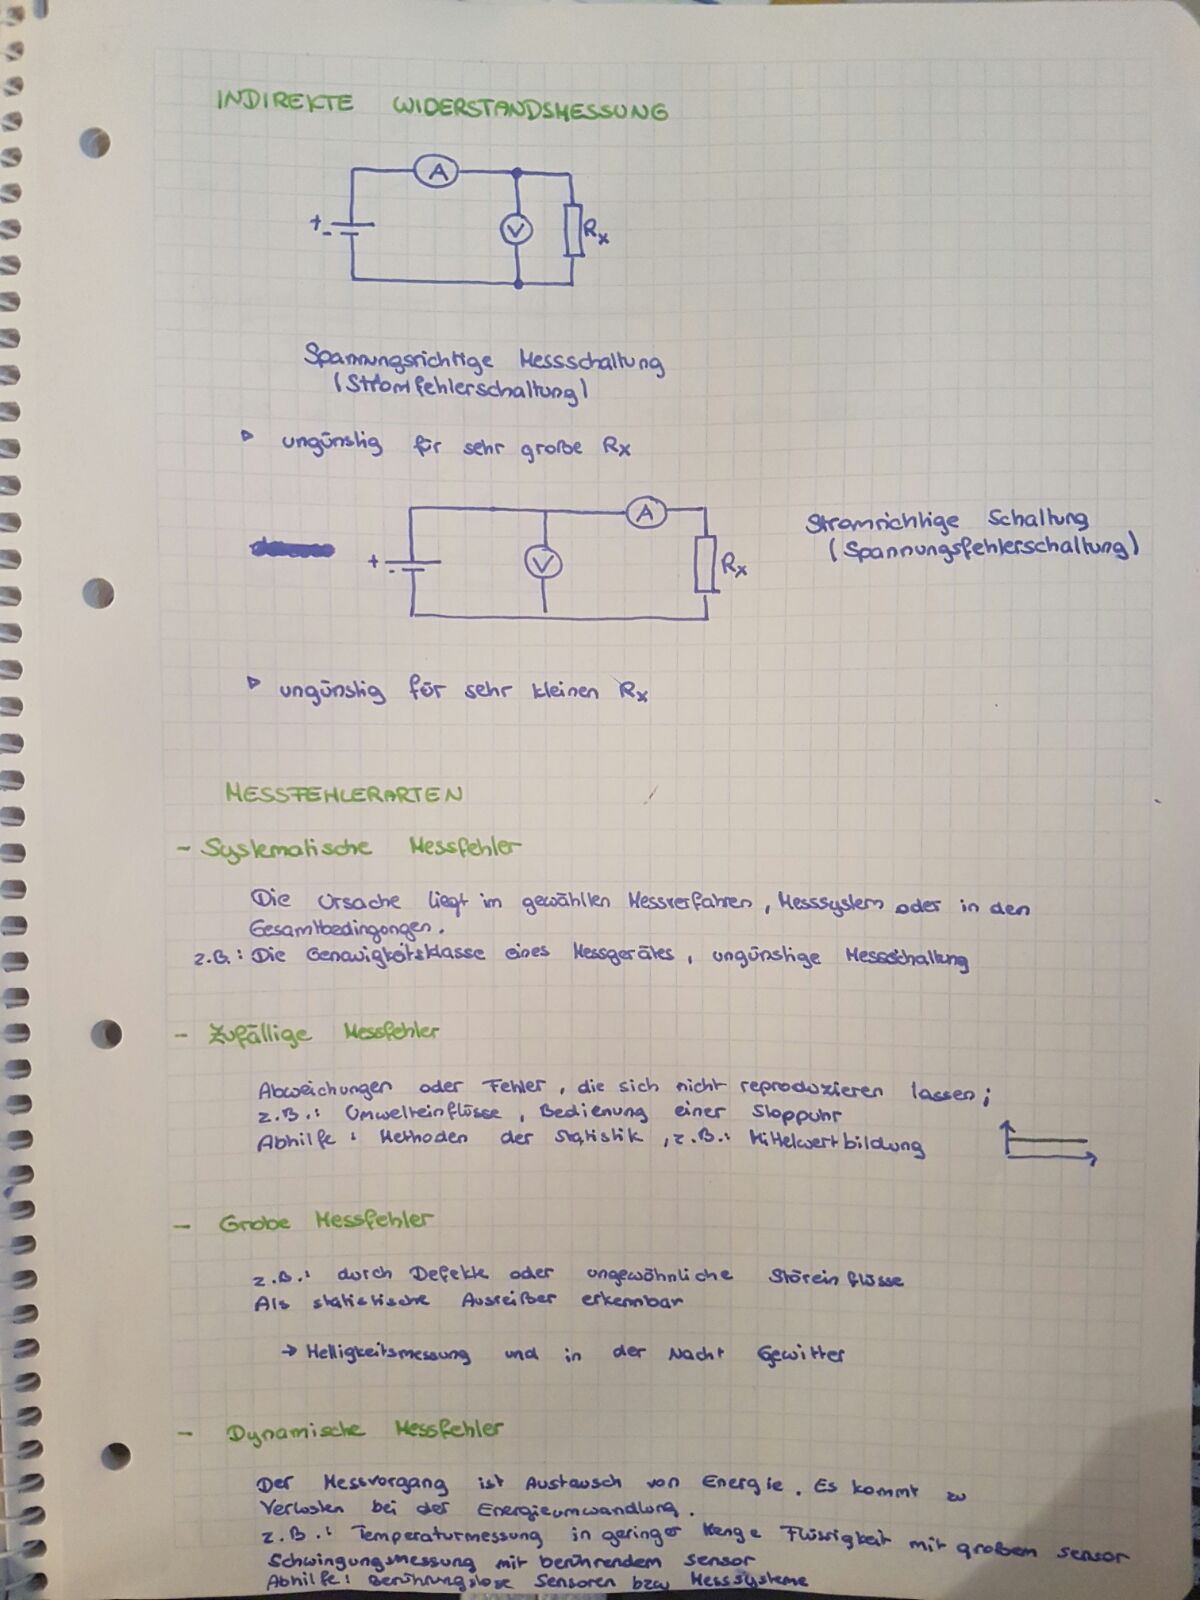 INDIREKTE WIDERSTANDSMESSUNG
A
+
-
V
Rx
Spannungsrichtige Messschaltung
(Stromfehlerschaltung)
▷ ungünstig für sehr große Rx
A
Stromrichtige Schaltung
(Spannungsfehlerschaltung)
+
-
V
Rx
▷ ungünstig für sehr kleinen Rx
MESSFEHLERARTEN
- Systematische Messfehler
Die Ursache liegt im gewählten Messverfahren, Messsystem oder in den
Gesamtbedingungen.
z.B.: Die Genauigkeitsklasse eines Messgerätes, ungünstige Messschaltung
- Zufällige Messfehler
Abweichungen oder Fehler, die sich nicht reproduzieren lassen;
z.B.: Umwelteinflüsse, Bedienung einer Stoppuhr
Abhilfe: Methoden der Statistik, z.B.: Mittelwertbildung
- Grobe Messfehler
z.B.: durch Defekte oder ungewöhnliche Störeinflüsse
Als statistische Ausreißer erkennbar
→ Helligkeitsmessung und in der Nacht Gewitter
- Dynamische Messfehler
Der Messvorgang ist Austausch von Energie. Es kommt zu
Verlusten bei der Energieumwandlung.
z.B.: Temperaturmessung in geringer Menge Flüssigkeit mit großem Sensor
Schwingungsmessung mit berührendem Sensor
Abhilfe: Berührungslose Sensoren bzw Messsysteme